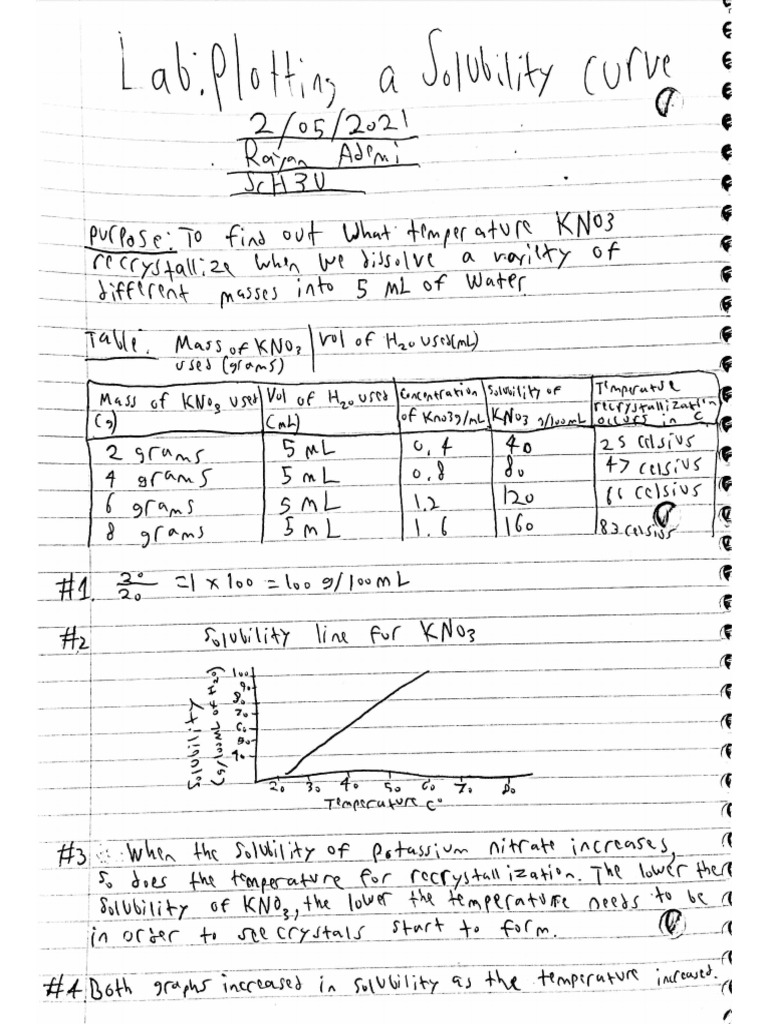 Lab: Plotting a Solubility curve
2/05/2021
Rayan Ademi
SCH3U
Purpose: To find out what temperature KNO3
recrystallize when we dissolve a varilty of
different masses into 5 mL of water.
Table: Mass of KNO3 used (grams) | Vol of H2O used (mL)
Mass of KNO3 used (g) | Vol of H2O used (mL) | Concentration of KNO3 g/mL | Solubility of KNO3 g/100mL | Temperature recrystallization occurs in C
2 grams | 5 mL | 0.4 | 40 | 25 celsius
4 grams | 5 mL | 0.8 | 80 | 47 celsius
6 grams | 5 mL | 1.2 | 120 | 66 celsius
8 grams | 5 mL | 1.6 | 160 | 83 celsius
#1. 20/20 = 1 x 100 = 100 g/100mL
#2 Solubility line for KNO3
Solubility (g/100mL of H2O)
100
90
80
70
60
50
40
20 30 40 50 60 70 80
Temperature C°
#3 When the solubility of potassium nitrate increases,
so does the temperature for recrystallization. The lower the
solubility of KNO3, the lower the temperature needs to be
in order to see crystals start to form.
#4 Both graphs increased in solubility as the temperature increased.